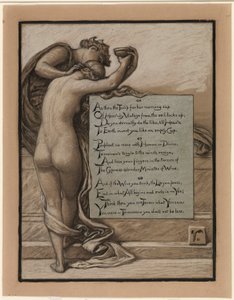 As then the Tulip for her morning sup
Of Heav'nly Vintage from the soil looks up,
Do you devoutly do the like, till Heav'n
To Earth invert you like an empty Cup.
Perplext no more with Human or Divine,
To-morrow's tangle to the winds resign,
And lose your fingers in the tresses of
The Cypress-slender Minister of Wine.
And if the Wine you drink, the Lip you press,
End in what All begins and ends in Yes;
Think then you are To-day what Yesterday
You were To-morrow you shall not be less.